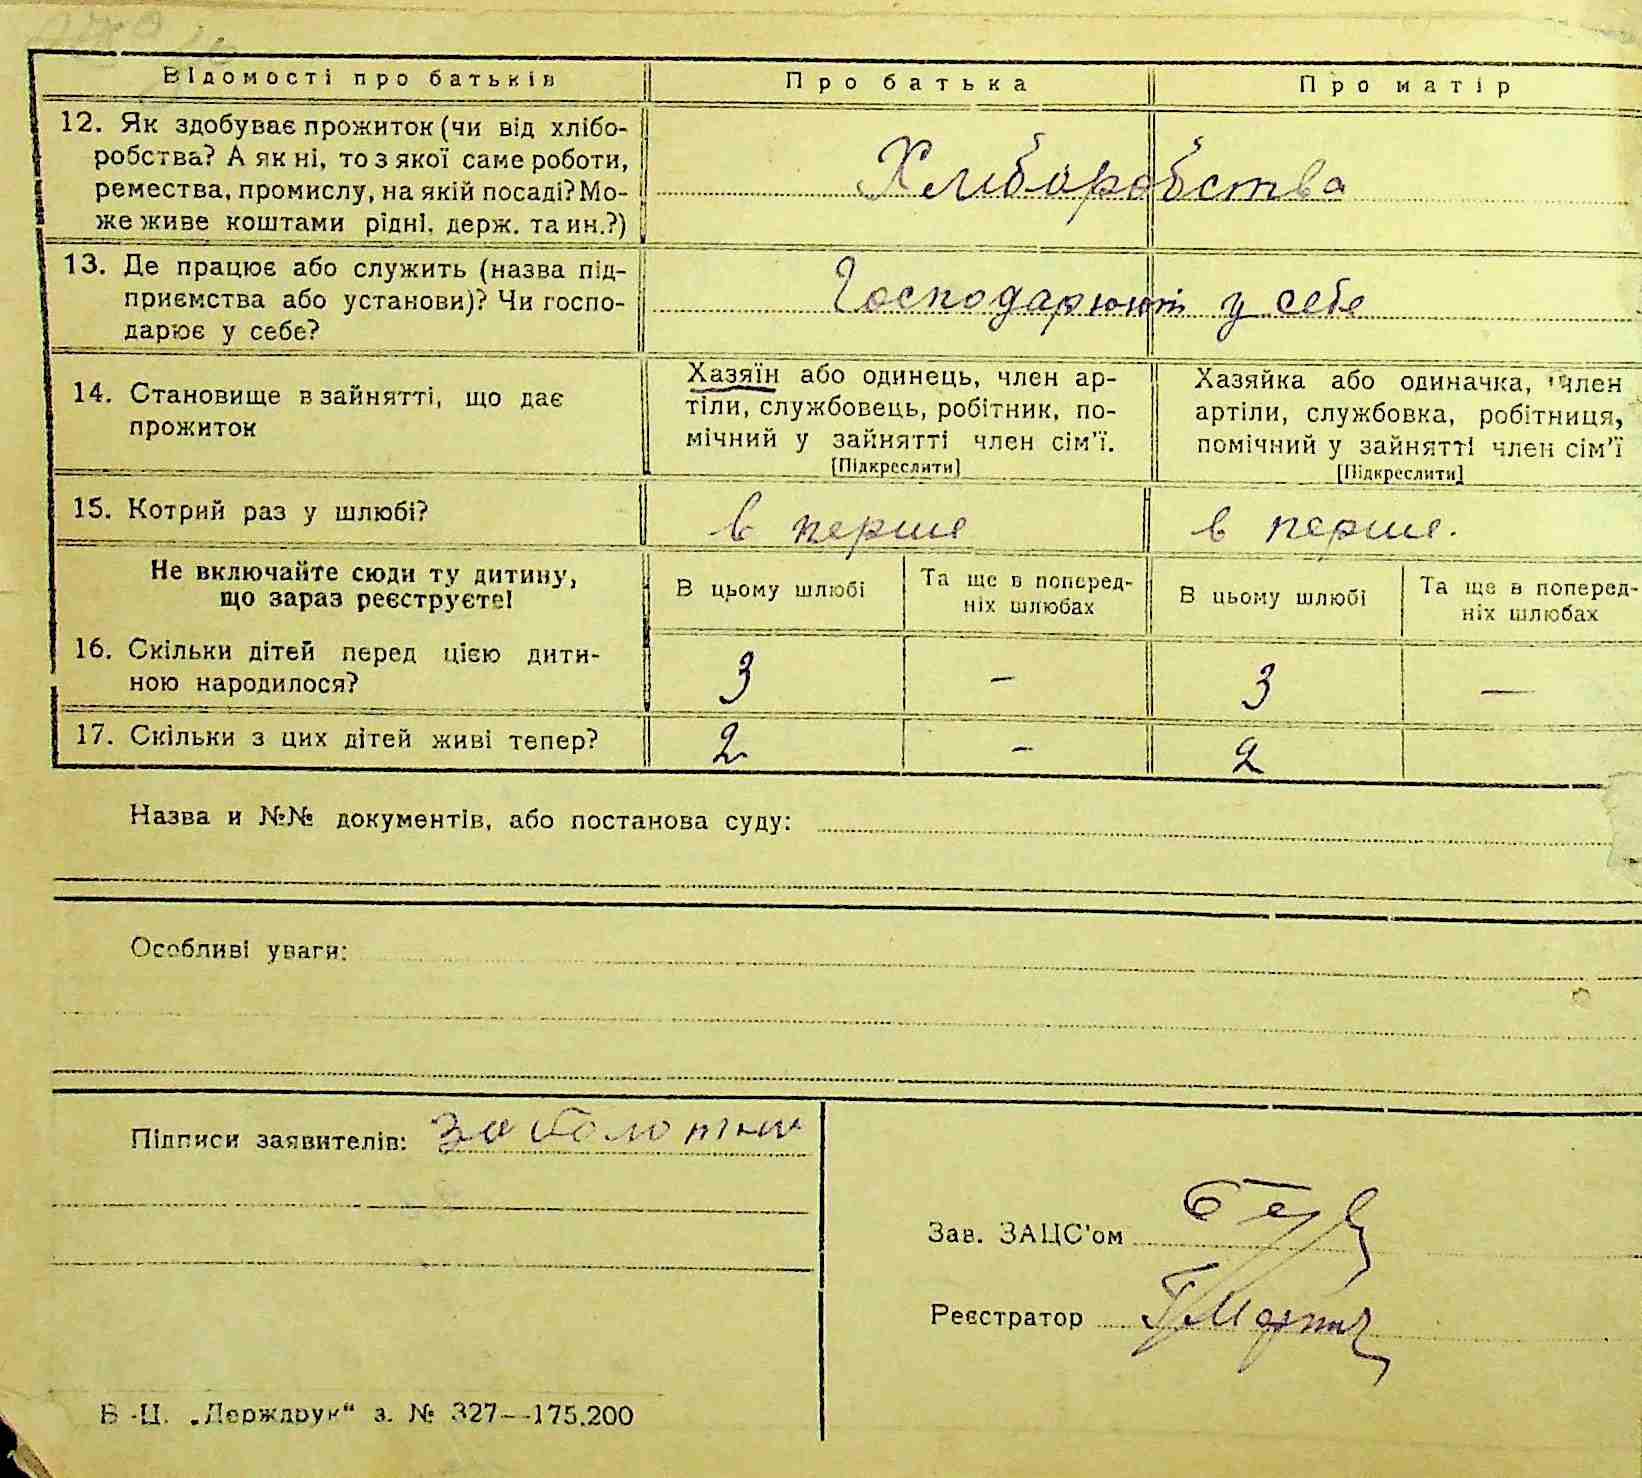 Відомості про батьків	Про батька	Про матір
12. Як здобуває прожиток (чи від хлібо-
робства? А як ні, то з якої саме роботи,
ремества, промислу, на якій посаді? Мо-
же живе коштами рідні, держ. та ин.?)
Хліборобства
13. Де працює або служить (назва під-
приємства або установи)? Чи госпо-
дарює у себе?
Господарюють у себе
14. Становище в зайнятті, що дає
прожиток
Хазяїн або одинець, член ар-
тіли, службовець, робітник, по-
мічний у зайнятті член сім'ї.
[Підкреслити]
Хазяйка або одиначка, член
артіли, службовка, робітниця,
помічний у зайнятті член сім'ї
[Підкреслити]
15. Котрий раз у шлюбі?	в перше	в перше.
Не включайте сюди ту дитину,
що зараз реєструєте!
В цьому шлюбі
Та ще в поперед-
ніх шлюбах
В цьому шлюбі
Та ще в поперед-
ніх шлюбах
16. Скільки дітей перед цією дити-
ною народилося?
3	-	3	—
17. Скільки з цих дітей живі тепер?	2	-	2
Назва и №№ документів, або постанова суду:
Особливі уваги:
Підписи заявителів: Заболотний
Зав. ЗАЦС'ом
Реєстратор
В.-Ц. „Держдрук“ з. № 327—175.200